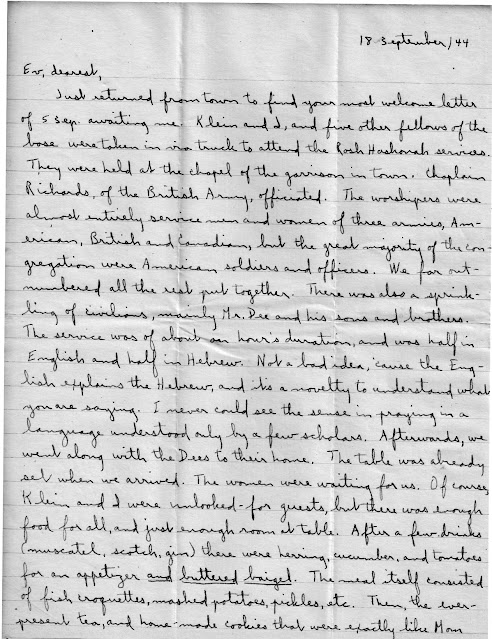 18 September/44
Ev, dearest,
Just returned from town to find your most welcome letter
of 5 Sep. awaiting me. Klein and I, and five other fellows of the
base were taken in via truck to attend the Rosh Hashonah services.
They were held at the chapel of the garrison in town. Chaplain
Richards, of the British Army, officiated. The worshipers were
almost entirely service men and women of three armies, Am-
erican, British and Canadian, but the great majority of the con-
gregation were American soldiers and officers. We far out-
numbered all the rest put together. There was also a sprink-
ling of civilians, mainly Mr. Dee and his sons and brothers.
The service was of about an hour's duration, and was half in
English and half in Hebrew. Not a bad idea, 'cause the Eng-
lish explains the Hebrew, and it's a novelty to understand what
you are saying. I never could see the sense in praying in a
language understood only by a few scholars. Afterwards, we
went along with the Dees to their home. The table was already
set when we arrived. The women were waiting for us. Of course,
Klein and I were unlooked-for guests, but there was enough
food for all, and just enough room at table. After a few drinks
(muscatel, scotch, gin) there were herring, cucumber, and tomatoes
for an appetizer and buttered baigel. The meal itself consisted
of fish croquettes, mashed potatoes, pickles, etc. Then, the ever-
present tea, and home-made cookies that were exactly like Mom